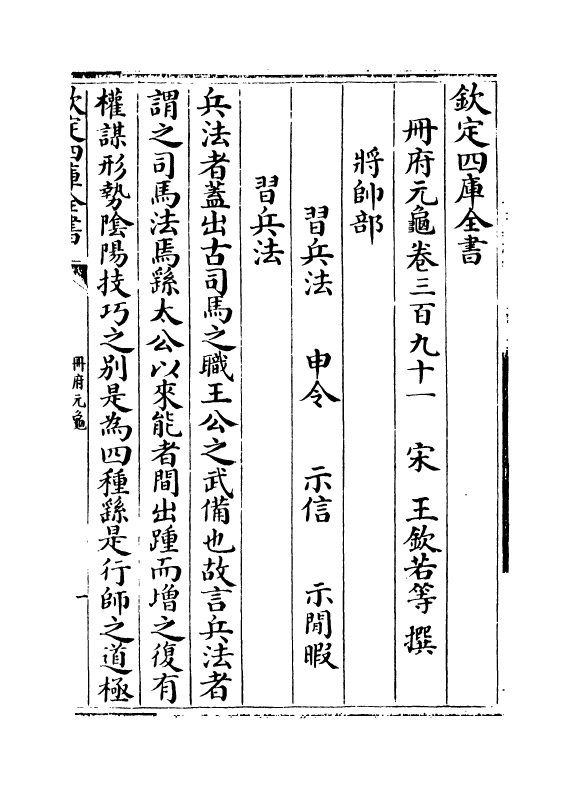 欽定四庫全書
冊府元龜卷三百九十一　宋　王欽若等　撰
將帥部
習兵法　申令　示信　示閒暇
習兵法
兵法者蓋出古司馬之職王公之武備也故言兵法者
謂之司馬法焉繇太公以來能者間出踵而增之復有
權謀形勢隂陽技巧之別是為四種繇是行師之道極
欽定四庫全書
冊府元龜
一